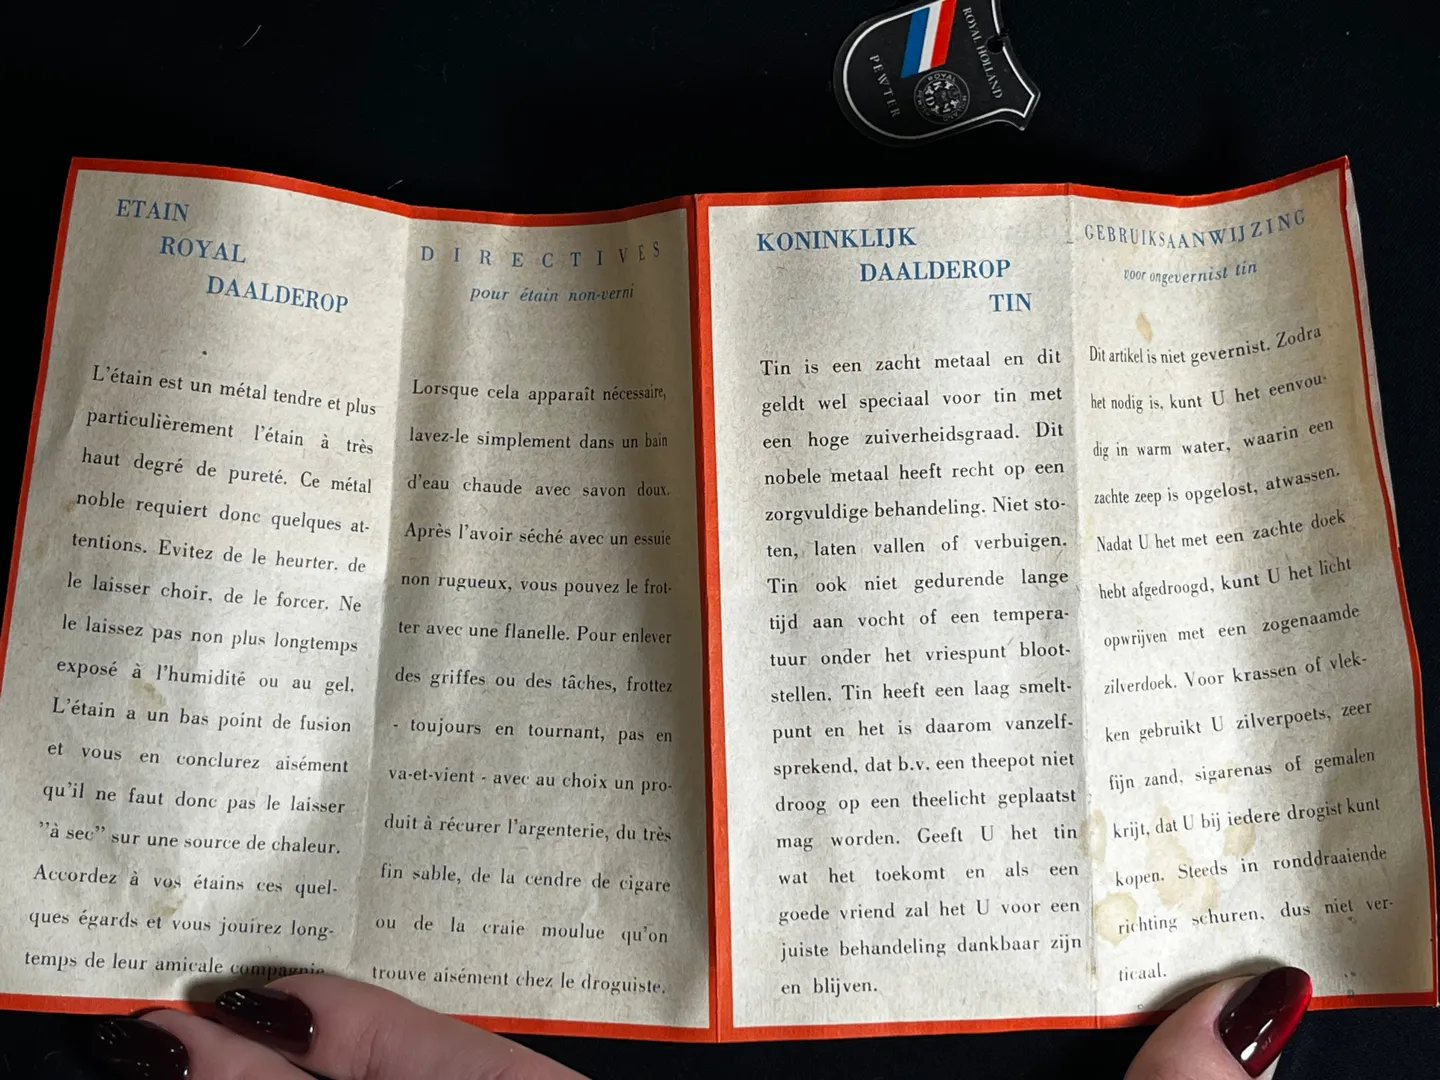 ROYAL HOLLAND
PEWTER
ROYAL
HOLLAND
KMD
ETAIN
ROYAL
DAALDEROP
L'étain est un métal tendre et plus
particulièrement l'étain à très
haut degré de pureté. Ce métal
noble requiert donc quelques at-
tentions. Evitez de le heurter, de
le laisser choir, de le forcer. Ne
le laissez pas non plus longtemps
exposé à l'humidité ou au gel.
L'étain a un bas point de fusion
et vous en conclurez aisément
qu'il ne faut donc pas le laisser
"à sec" sur une source de chaleur.
Accordez à vos étains ces quel-
ques égards et vous jouirez long-
temps de leur amicale compagnie
DIRECTIVES
pour étain non-verni
Lorsque cela apparaît nécessaire,
lavez-le simplement dans un bain
d'eau chaude avec savon doux.
Après l'avoir séché avec un essuie
non rugueux, vous pouvez le frot-
ter avec une flanelle. Pour enlever
des griffes ou des tâches, frottez
- toujours en tournant, pas en
va-et-vient - avec au choix un pro-
duit à récurer l'argenterie, du très
fin sable, de la cendre de cigare
ou de la craie moulue qu'on
trouve aisément chez le droguiste.
KONINKLIJK
DAALDEROP
TIN
Tin is een zacht metaal en dit
geldt wel speciaal voor tin met
een hoge zuiverheidsgraad. Dit
nobele metaal heeft recht op een
zorgvuldige behandeling. Niet sto-
ten, laten vallen of verbuigen.
Tin ook niet gedurende lange
tijd aan vocht of een tempera-
tuur onder het vriespunt bloot-
stellen. Tin heeft een laag smelt-
punt en het is daarom vanzelf-
sprekend, dat b.v. een theepot niet
droog op een theelicht geplaatst
mag worden. Geeft U het tin
wat het toekomt en als een
goede vriend zal het U voor een
juiste behandeling dankbaar zijn
en blijven.
GEBRUIKSAANWIJZING
voor ongevernist tin
Dit artikel is niet gevernist. Zodra
het nodig is, kunt U het eenvou-
dig in warm water, waarin een
zachte zeep is opgelost, afwassen.
Nadat U het met een zachte doek
hebt afgedroogd, kunt U het licht
opwrijven met een zogenaamde
zilverdoek. Voor krassen of vlek-
ken gebruikt U zilverpoets, zeer
fijn zand, sigarenas of gemalen
krijt, dat U bij iedere drogist kunt
kopen. Steeds in ronddraaiende
richting schuren, dus niet ver-
ticaal.